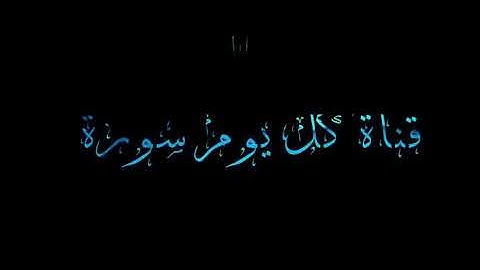 قناة كل يوم سورة